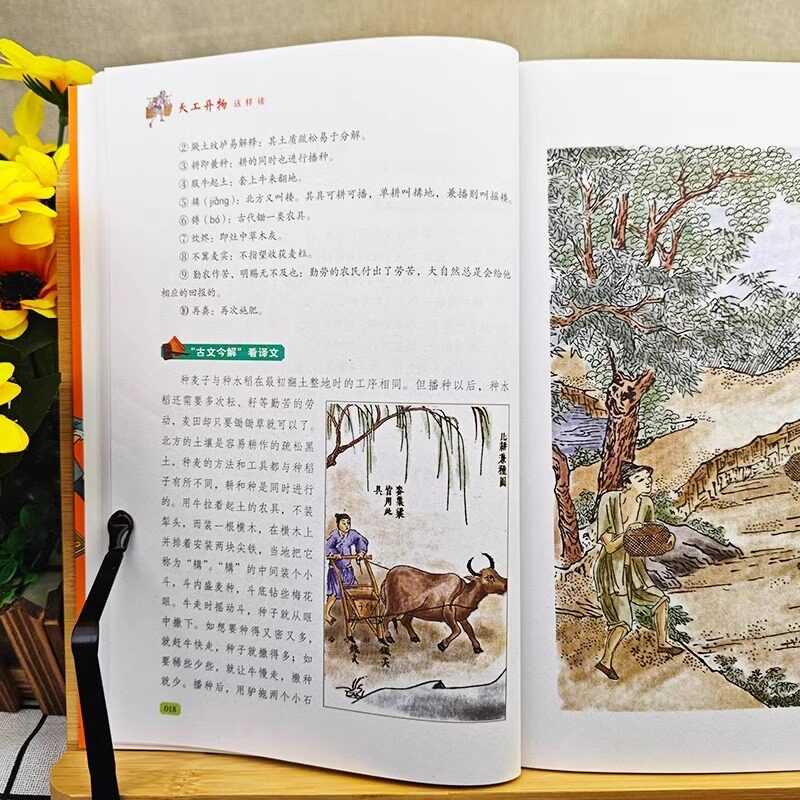 天工开物 这样读
② 厥土坟垆易解释：其土质疏松易于分解。
③ 耕即兼种：耕的同时也进行播种。
④ 服牛起土：套上牛来翻地。
⑤ 耩（jiǎng）：北方又叫耧。其具可耕可播，单耕叫耩地，兼播则叫摇耧。
⑥ 镈（bó）：古代锄一类农具。
⑦ 炊烬：即灶中草木灰。
⑧ 不冀麦实：不指望收获麦粒。
⑨ 勤农作苦，明赐无不及也：勤劳的农民付出了劳苦，大自然总是会给他
相应的回报的。
⑩ 再粪：再次施肥。
“古文今解”看译文
种麦子与种水稻在最初翻土整地时的工序相同。但播种以后，种水
稻还需要多次耘、耔等勤苦的劳
动，麦田却只要锄锄草就可以了。
北方的土壤是容易耕作的疏松黑
土，种麦的方法和工具都与种稻
子有所不同，耕和种是同时进行
的。用牛拉着起土的农具，不装
犁头，而装一根横木，在横木上
并排着安装两块尖铁，当地把它
称为“耩”。“耩”的中间装个小
斗，斗内盛麦种，斗底钻些梅花
眼。牛走时摇动斗，种子就从眼
中撒下。如想要种得又密又多，
就赶牛快走，种子就撒得多；如
要稀些少些，就让牛慢走，撒种
就少。播种后，用驴拖两个小石
北耕兼种图
皆用此
具
018